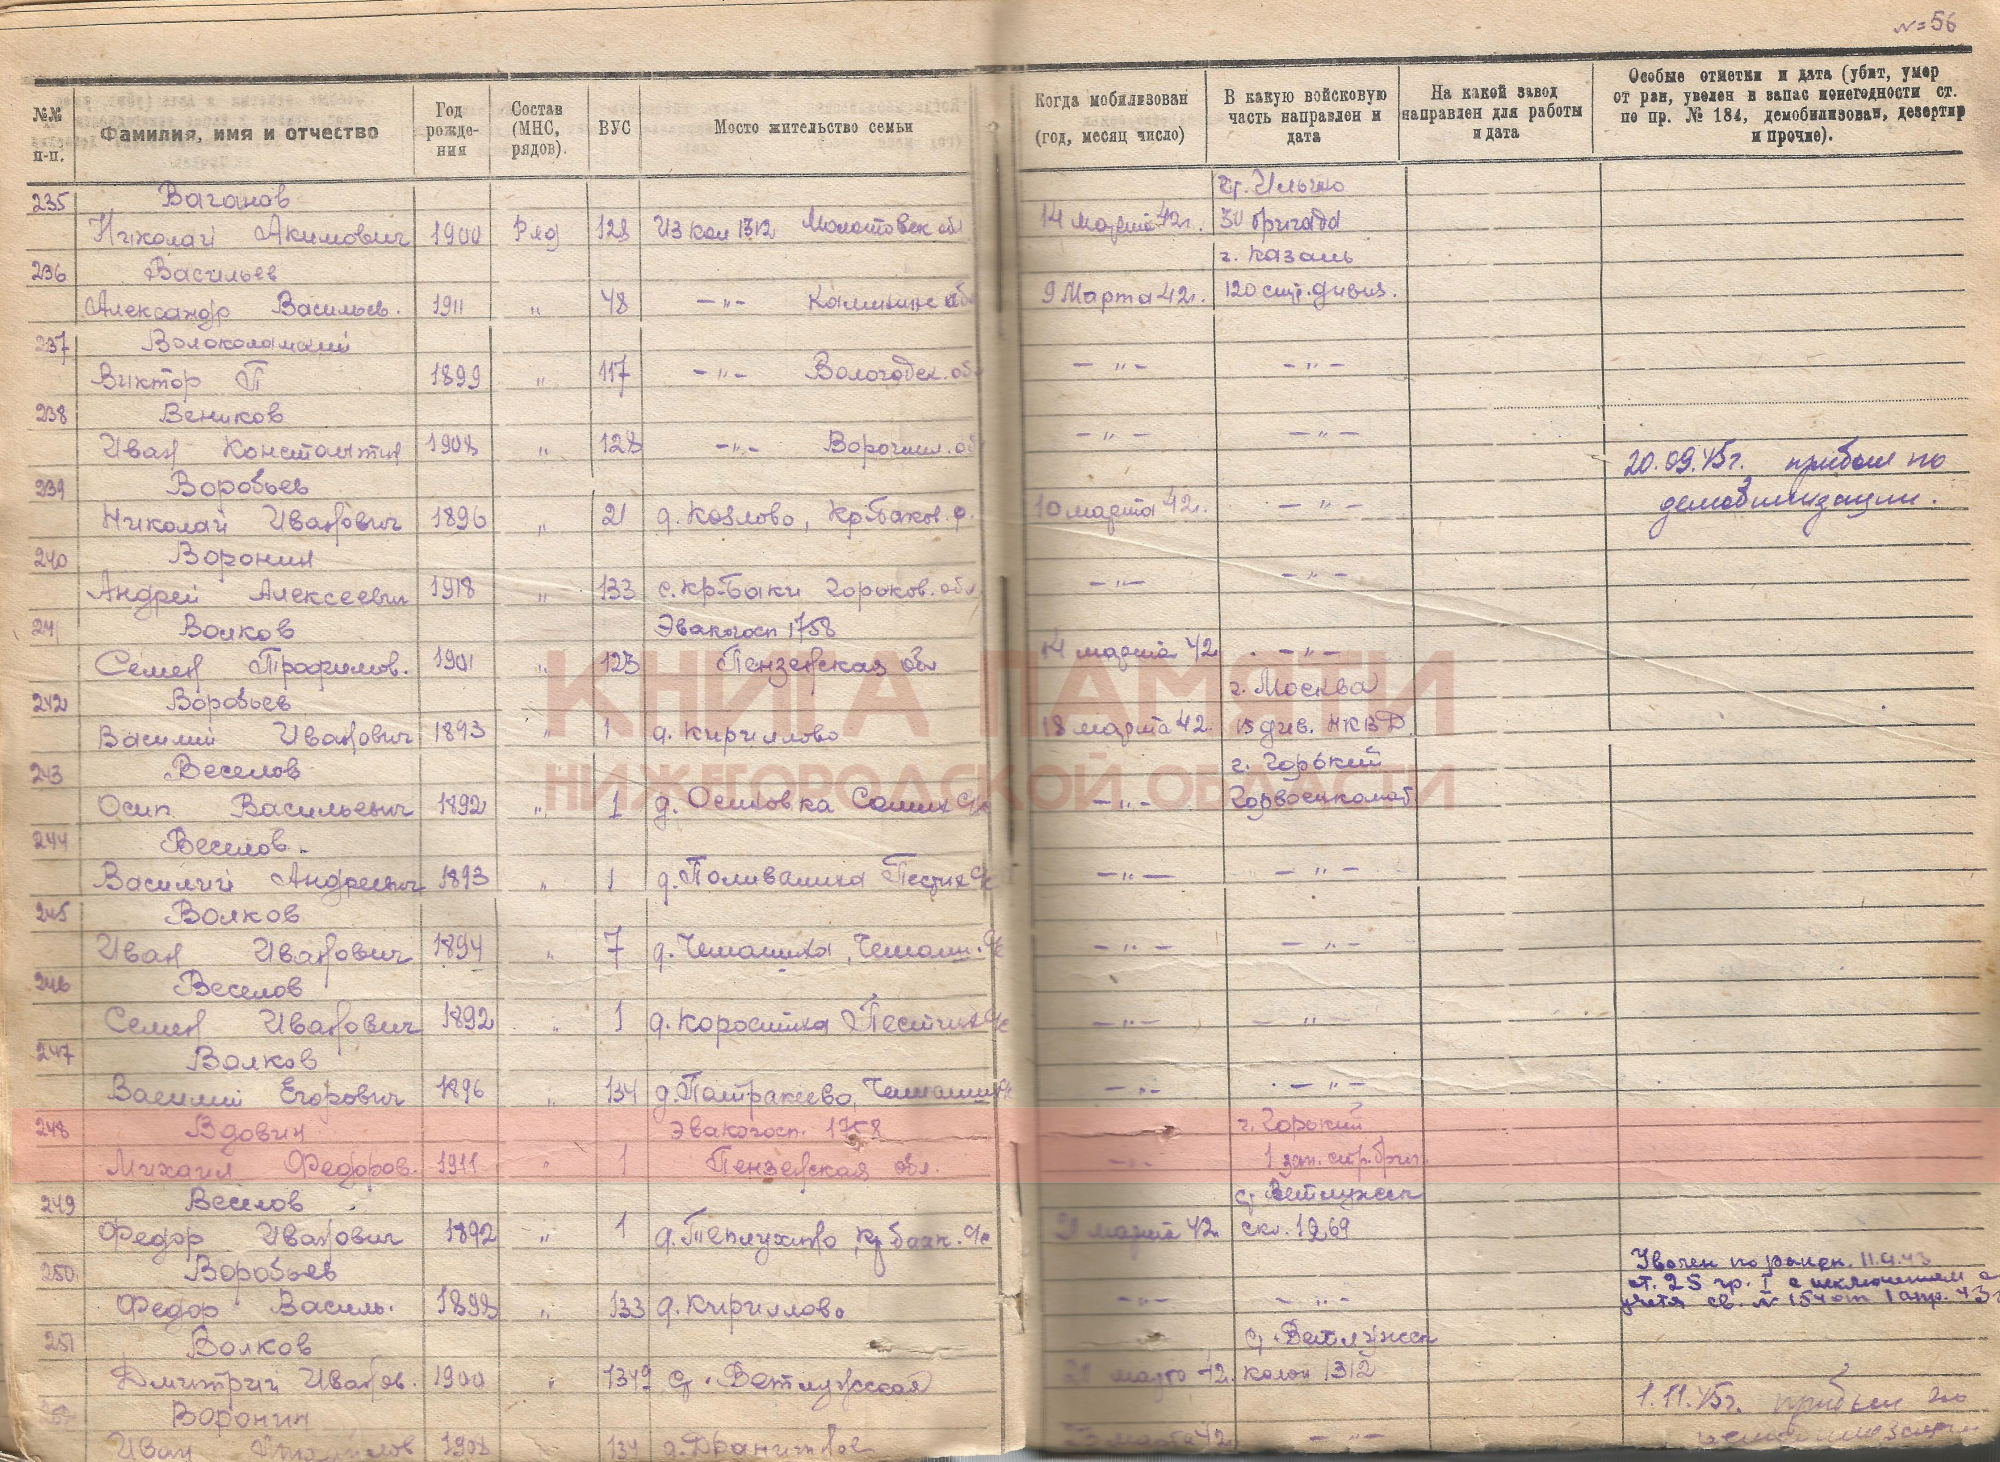 №=56
№№ п-п.
Фамилия, имя и отчество
Год рожде-ния
Состав (МНС, рядов).
ВУС
Мосто жительство семьи
Когда мобилизован (год, месяц число)
В какую войсковую часть направлен и дата
На какой завод направлен для работы и дата
Особые отметки и дата (убит, умер от ран, уволен в запас понегодности ст. по пр. № 184, демобилизован, дезертир и прочие).
235 Ваганов
Николай Акимович 1900 Ряд 128 Из кол 1312 Молотовск обл 14 марта 42г. 30 бригада
236 Васильев г. Казань
Александр Васильев. 1911 „ 48 —„— Калининс обл 9 Марта 42г. 120 стр. дивиз.
237
Виктор П 1899 „ 117 —„— Вологодск. обл —„— —„—
238 Веников
Иван Константин 1908 „ 128 —„— Ворошил. об —„— —„—
20.09.45г. прибыл по
239 Воробьев демобилизации.
Николай Иванович 1896 „ 21 д. Козлово, Кр-Баков. р. 10 марта 42г. —„—
240 Воронин
Андрей Алексеевич 1918 „ 133 с. Кр-Баки Горьков. обл —„— —„—
241 Волков Эвакогосп 1758
Семен Трофимов. 1901 „ 123 Пензенская обл 14 марта 42 —„—
242 Воробьев г. Москва
Василий Иванович 1893 „ 1 д. Кириллово 18 марта 42. 15 див. НКВД.
243 Веселов г. Горький
Осип Васильевич 1892 „ 1 д. Осиновка —„— Горвоенкомат
244 Веселов.
Василий Андреевич 1893 „ 1 д. Поливашиха —„— —„—
245 Волков
Иван Иванович 1894 „ 7 д. Чемашиха, Чемаш. —„— —„—
246 Веселов
Семен Иванович 1892 „ 1 —„— —„—
247 Волков
Василий Егорович 1896 „ 134 д. Патракеево, —„— —„—
248 Вдовин Эвакогосп. 1758 г. Горький
Михаил Федоров. 1911 „ 1 Пензенская обл. —„— 1 зап. стр. бриг.
249 Веселов ст Ветлужск
Федор Иванович 1892 „ 1 21 марта 42. скл. 1269
250 Воробьев Уволен по ранен. 11.9.43
ст. 25 гр. I с исключением с
Федор Василь. „ 133 д. Кириллово —„— —„— учета св. № 154 от 1 апр. 43г
251 Волков ст. Ветлужск
Дмитрий Иванов. 1900 „ 1349 ст. Ветлужская 21 марта 42. колон 1312
Воронин 1.11.45г. прибыл по
Иван 134 марта 42 —„— демобилизации
КНИГА ПАМЯТИ
НИЖЕГОРОДСКОЙ ОБЛАСТИ